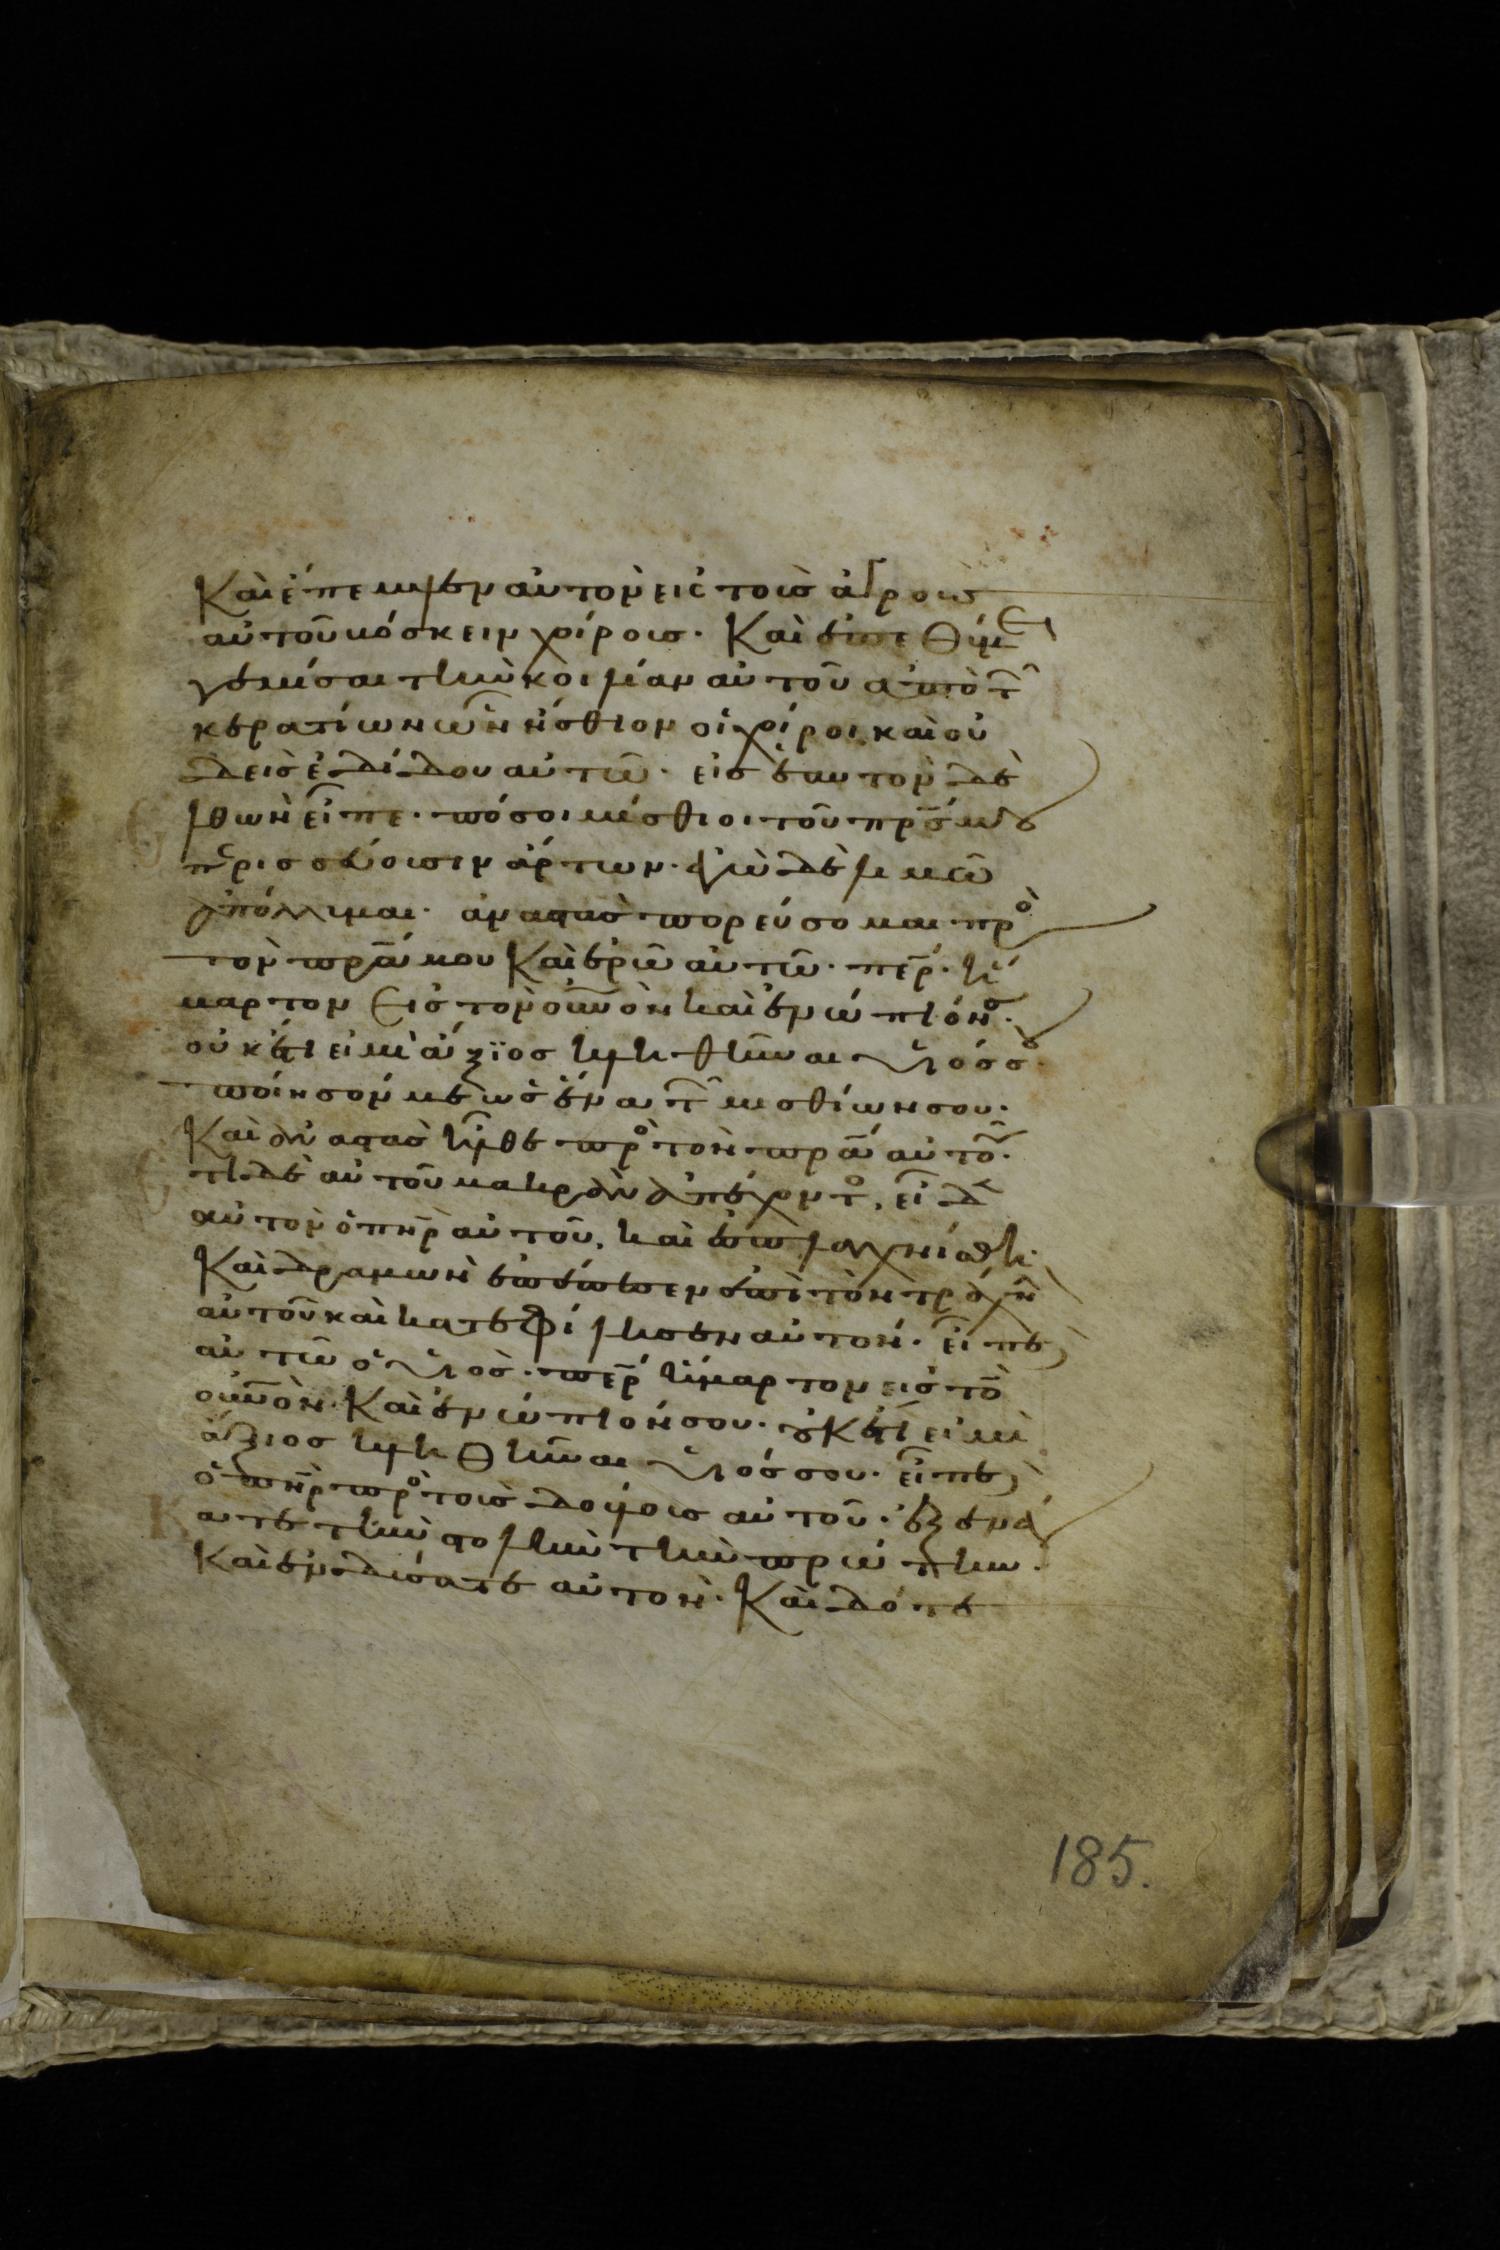 Καὶ ἔπεμψεν αὐτὸν εἰς τοὺς ἀγροὺς
αὐτοῦ βόσκειν χοίρους· Καὶ ἐπεθύμει
γεμίσαι τὴν κοιλίαν αὐτοῦ ἀπὸ τῶν
κερατίων ὧν ἤσθιον οἱ χοῖροι, καὶ οὐ
δεὶς ἐδίδου αὐτῶ· εἰς ἑαυτὸν δὲ
ἐλθὼν εἶπε· πόσοι μίσθιοι τοῦ π̅ρ̅ς̅ μου
περισσεύουσιν ἄρτων· ἐγὼ δὲ λιμῶ
ἀπόλλυμαι· ἀναστὰς πορεύσομαι πρὸς
τὸν π̅ρ̅α̅ μου Καὶ ἐρῶ αὐτῶ· π̅ε̅ρ̅· ἥ
μαρτον εἰς τὸν ο̅υ̅ν̅ον καὶ ἐνώπιόν σου·
οὐκέτι εἰμὶ ἄξϊος κληθῆναι υἱός σου·
ποίησόν με ὡς ἕνα τῶν μισθίων σου·
Καὶ ἀναστὰς ἦλθε πρὸς τὸν π̅ρ̅α̅ αὐτοῦ·
Ἔτι δὲ αὐτοῦ μακρὰν ἀπέχοντος, εἶδεν
αὐτὸν ὁ π̅η̅ρ̅ αὐτοῦ, καὶ ἐσπλαγχνίσθη·
Καὶ δραμὼν ἐπέπεσεν ἐπὶ τὸν τράχηλον
αὐτοῦ καὶ κατεφίλησεν αὐτόν· εἶπε
αὐτῶ ὁ υἱὸς· π̅ε̅ρ̅ ἥμαρτον εἰς τὸν
ο̅υ̅ν̅ὸν· Καὶ ἐνώπιόν σου· οὐκέτι εἰμὶ
ἄξιος κληθῆναι υἱός σου· εἶπε
ὁ π̅η̅ρ̅ πρὸς τοὺς δούλους αὐτοῦ· ἐξενέγκ
ατε τὴν στολὴν τὴν πρώτην·
Καὶ ἐνδύσατε αὐτὸν· Καὶ δότε
185.